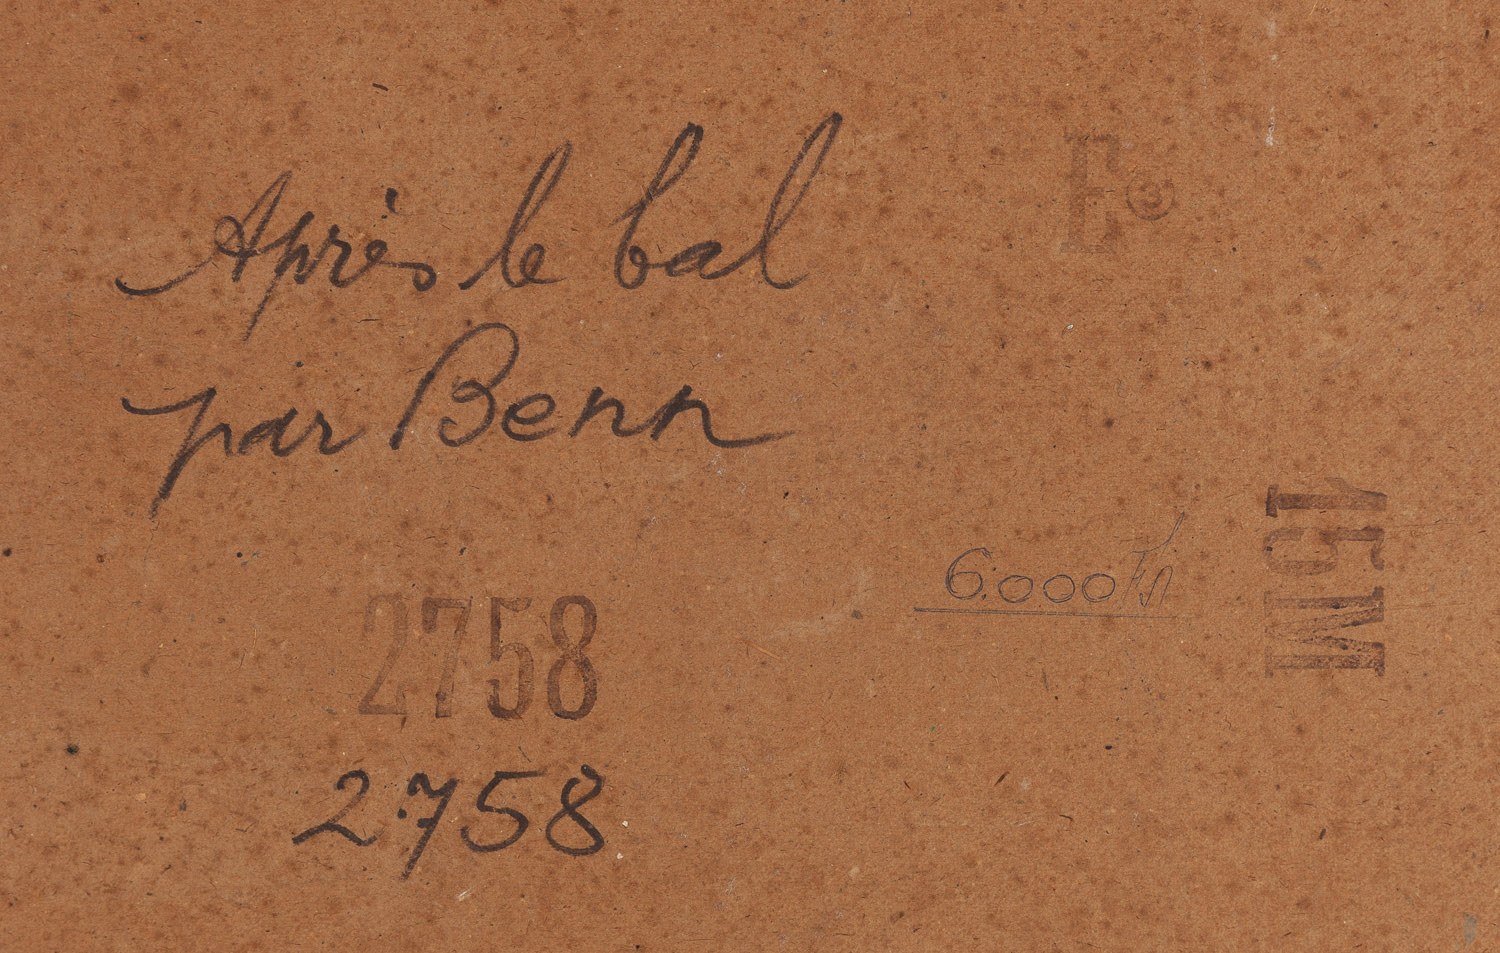 Après le bal
par Benn
E 3
15M
6.000 Frs
2758
2.758